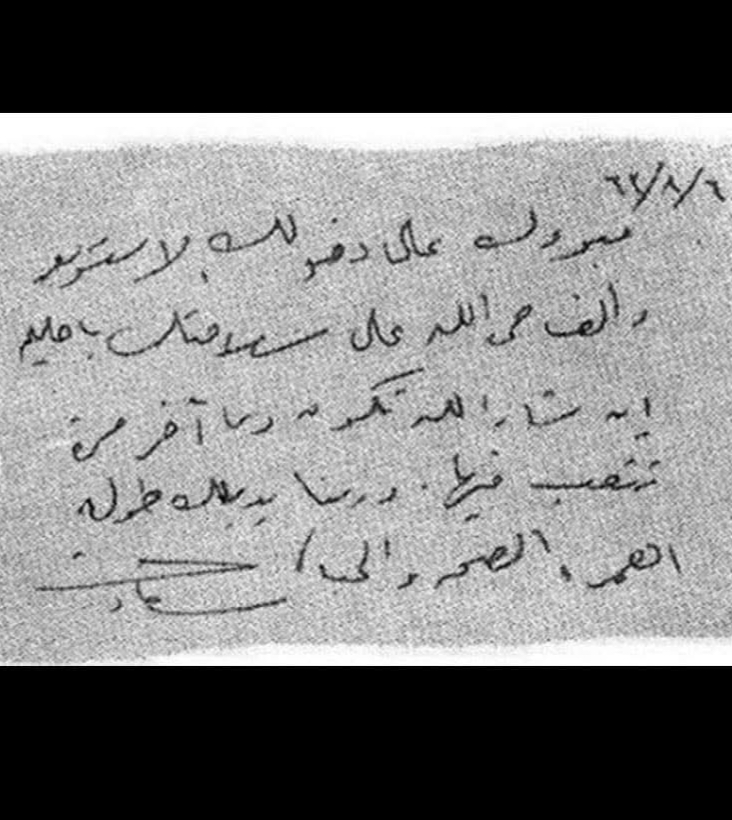 ٦٢/٨/٦
مبروك على دخولك الاستوديو
وألف حمد الله على سلامتك يا حليم
إن شاء الله تكون دى آخر مرة
تتعب فيها. وربنا يديلك طولة
العمر والصحة والحب
سعاد